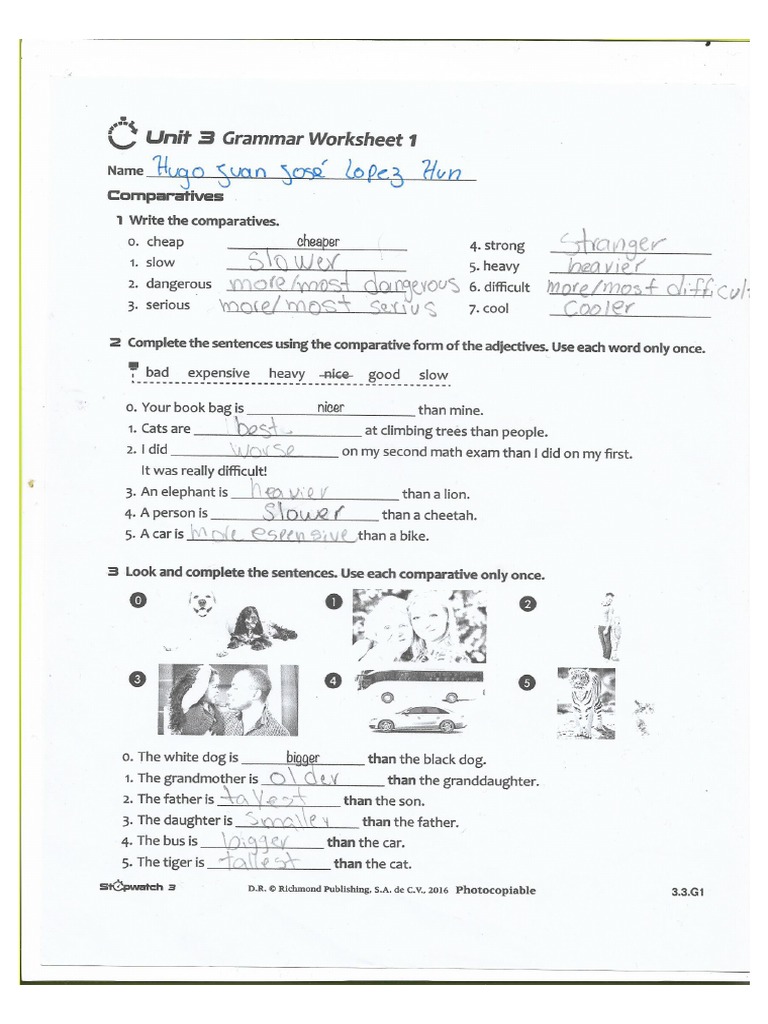 Unit 3 Grammar Worksheet 1
Name Hugo Juan José Lopez Hun
Comparatives
1 Write the comparatives.
0. cheap cheaper
1. slow slower
2. dangerous more/most dangerous
3. serious more/most serius
4. strong Stranger
5. heavy heavier
6. difficult more/most difficult
7. cool Cooler
2 Complete the sentences using the comparative form of the adjectives. Use each word only once.
bad expensive heavy nice good slow
0. Your book bag is nicer than mine.
1. Cats are best at climbing trees than people.
2. I did worse on my second math exam than I did on my first.
It was really difficult!
3. An elephant is heavier than a lion.
4. A person is Slower than a cheetah.
5. A car is more espensive than a bike.
3 Look and complete the sentences. Use each comparative only once.
0 1 2
3 4 5
0. The white dog is bigger than the black dog.
1. The grandmother is older than the granddaughter.
2. The father is tallest than the son.
3. The daughter is smaller than the father.
4. The bus is bigger than the car.
5. The tiger is tallest than the cat.
Stopwatch 3 D.R. © Richmond Publishing, S.A. de C.V., 2016 Photocopiable 3.3.G1